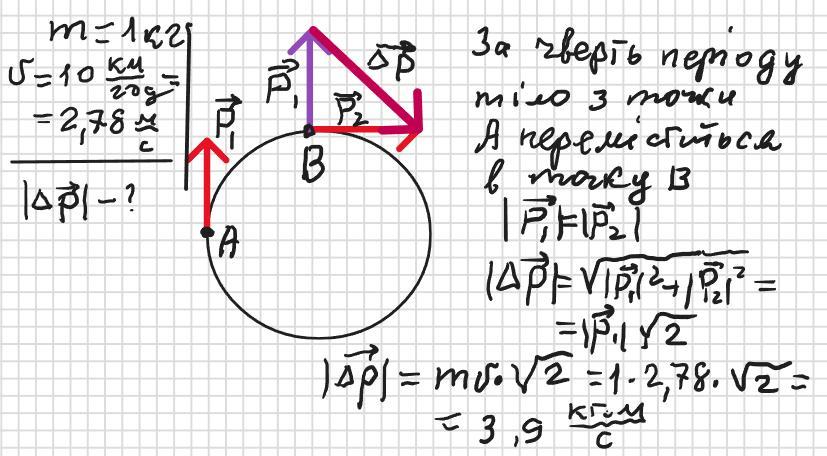 m = 1 кг
υ = 10 км/год =
= 2,78 м/с
|Δp⃗| - ?
p⃗₁
A
p⃗₁
p⃗₂
Δp⃗
B
За чверть періоду
тіло з точки
А переміститься
в точку В
|p⃗₁| = |p⃗₂|
|Δp⃗| = √|p⃗₁|² + |p⃗₂|² =
= |p⃗₁| √2
|Δp⃗| = mυ · √2 = 1 · 2,78 · √2 =
= 3,9 кг·м/с